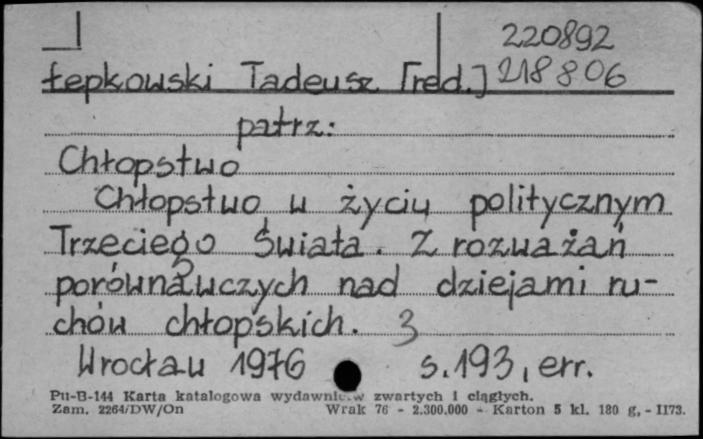 220892
Łepkowski Tadeusz [red.] 218806
patrz:
Chłopstwo
Chłopstwo w życiu politycznym
Trzeciego Świata. Z rozważań
porównawczych nad dziejami ru-
chów chłopskich. 3
Wrocław 1976 s. 193, err.
Pu-B-144 Karta katalogowa wydawnictw zwartych i ciągłych.
Zam. 2264/DW/On Wrak 76 - 2.300.000 - Karton 5 kl. 180 g, - 1173.